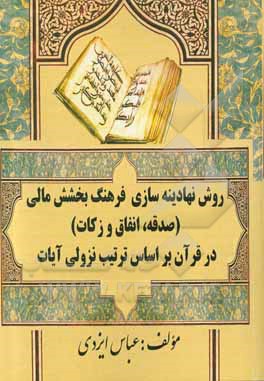 روش نهادینه سازی فرهنگ بخشش مالی
(صدقه، انفاق و زکات)
در قرآن بر اساس ترتیب نزولی آیات
مؤلف: عباس ایزدی